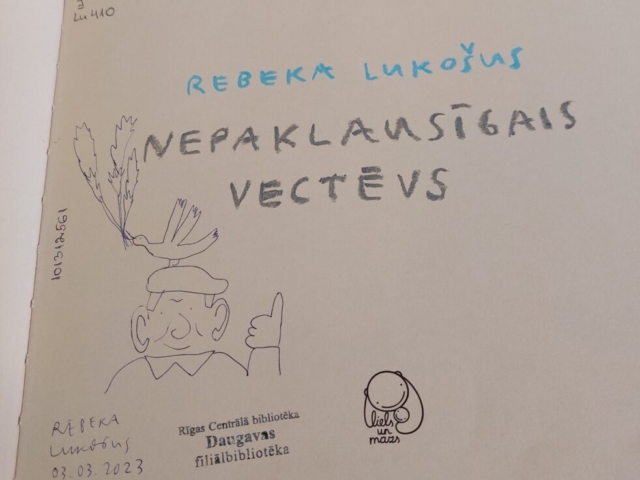 Lu 410
REBEKA LUKOŠUS
NEPAKLAUSĪGAIS
VECTĒVS
101312561
REBEKA
LUKOŠUS
03.03.2023
Rīgas Centrālā bibliotēka
Daugavas
filiālbibliotēka
liels
un
mazs